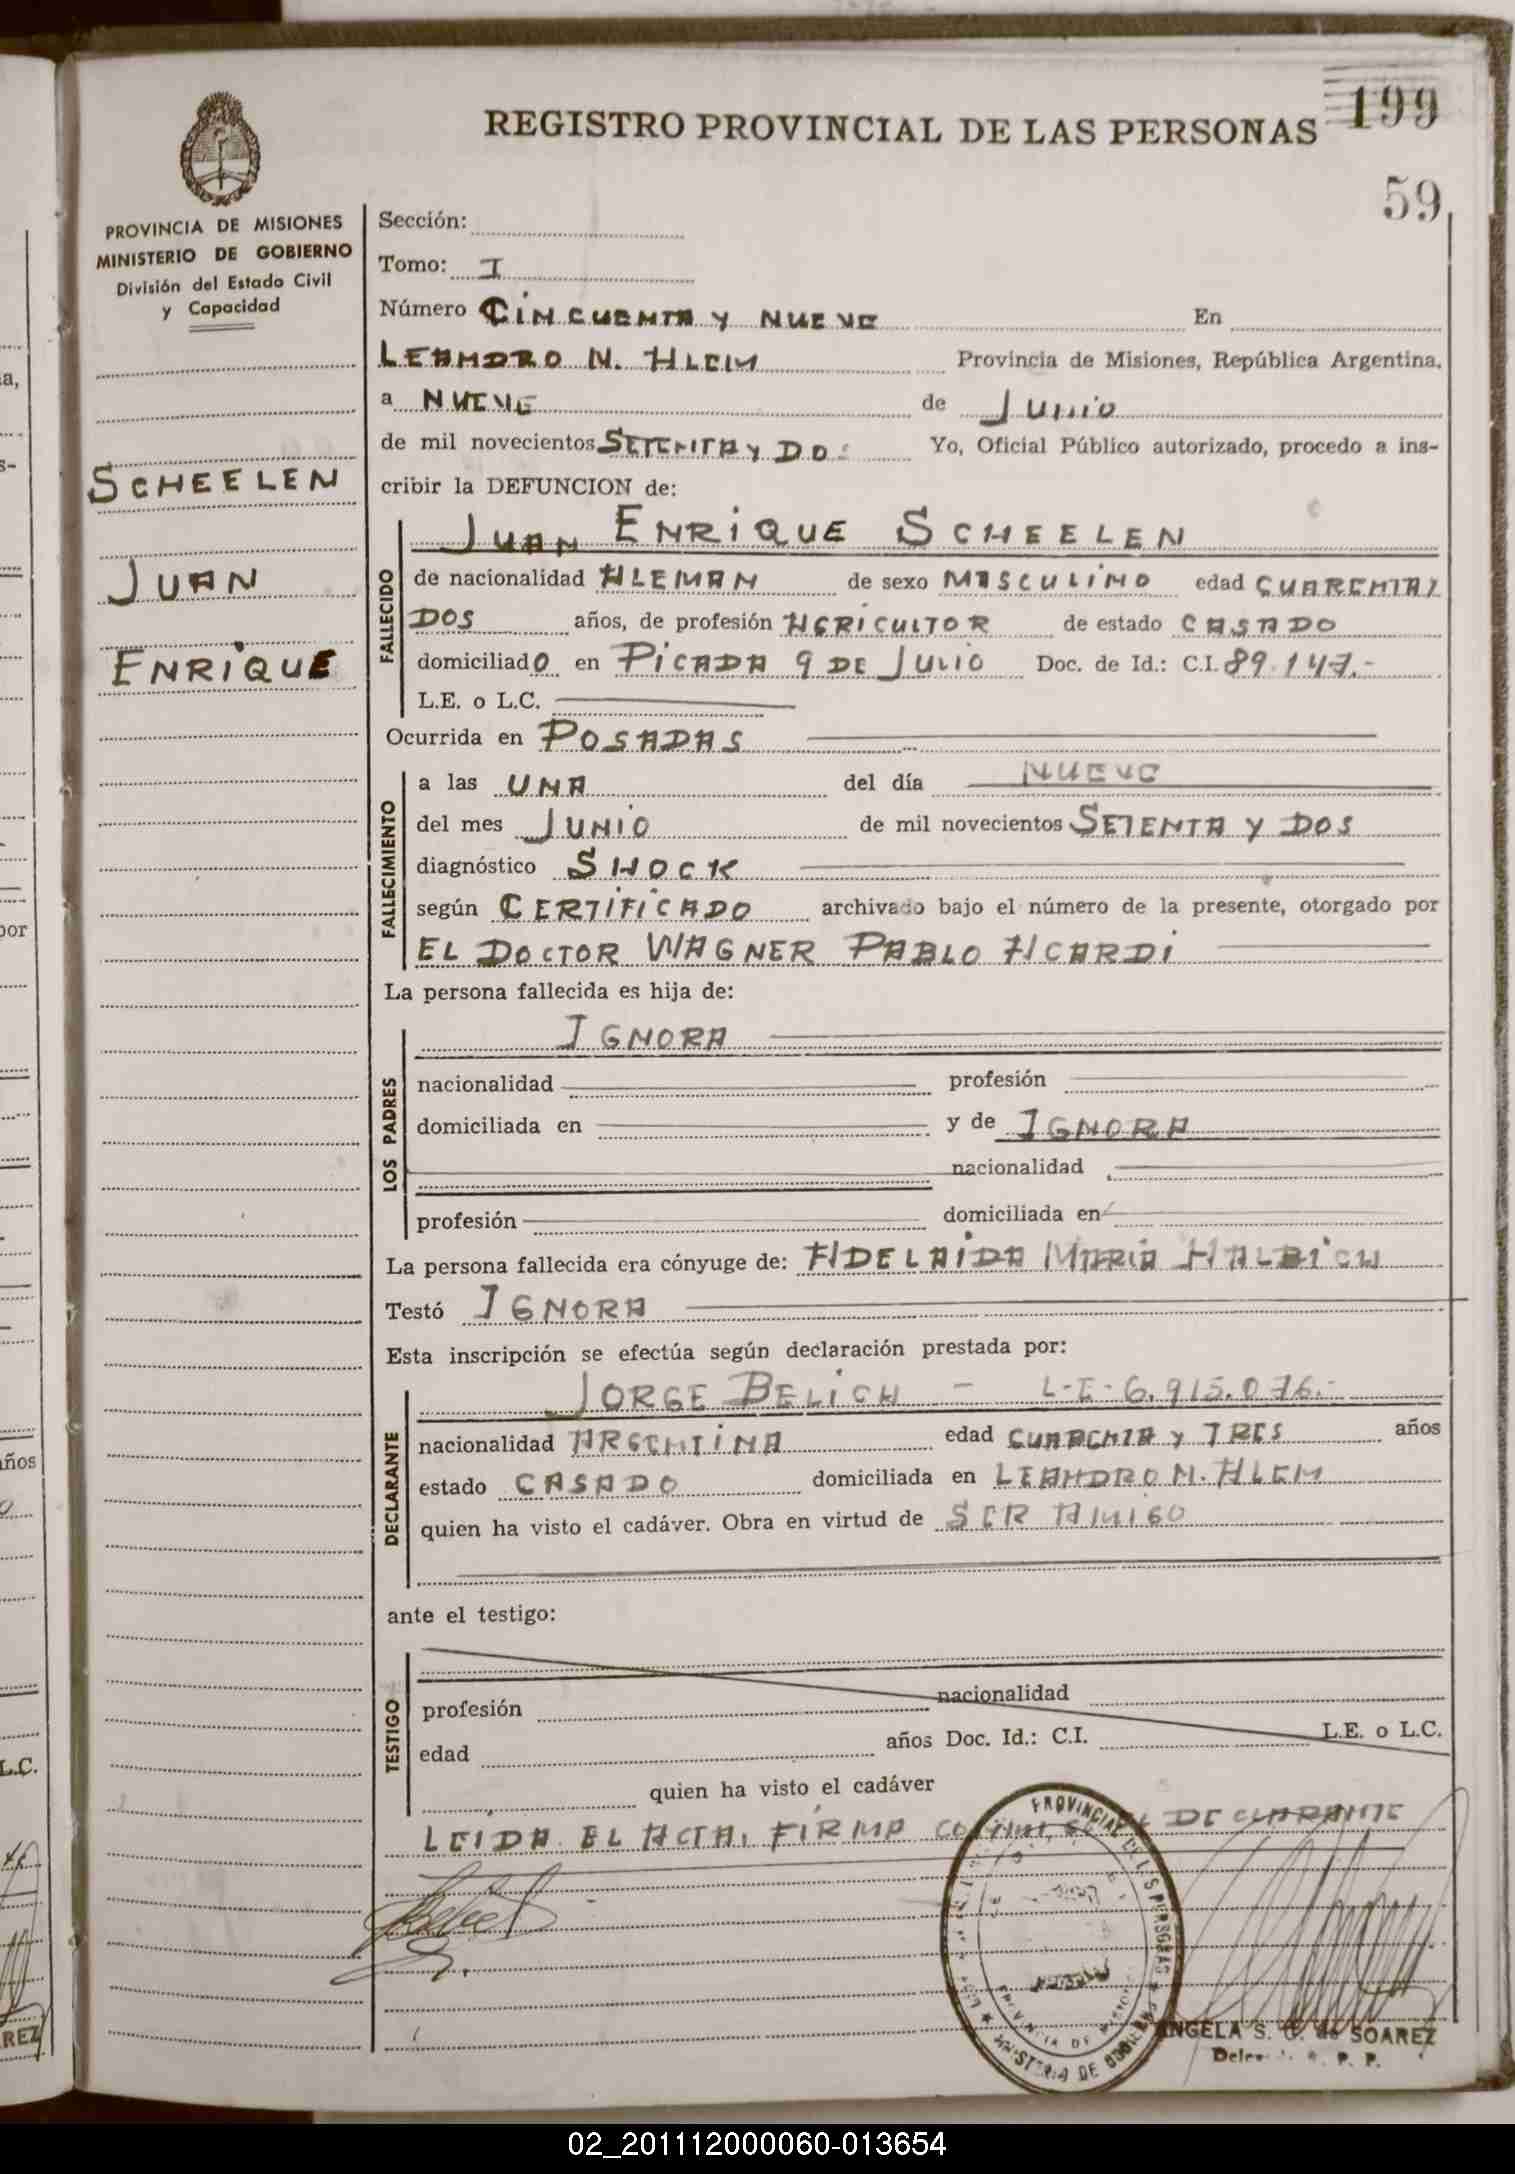 199
REGISTRO PROVINCIAL DE LAS PERSONAS
59
PROVINCIA DE MISIONES
MINISTERIO DE GOBIERNO
División del Estado Civil
y Capacidad
SCHEELEN
JUAN
ENRIQUE
Sección:
Tomo: I
Número CINCUENTA Y NUEVE En
LEANDRO N. ALEM Provincia de Misiones, República Argentina,
a NUEVE de JUNIO
de mil novecientos SETENTA Y DOS Yo, Oficial Público autorizado, procedo a ins-
cribir la DEFUNCION de:
JUAN ENRIQUE SCHEELEN
FALLECIDO
de nacionalidad ALEMAN de sexo MASCULINO edad CUARENTAY
DOS años, de profesión AGRICULTOR de estado CASADO
domiciliadO en PICADA 9 DE JULIO Doc. de Id.: C.I. 89.147.-
L.E. o L.C.
Ocurrida en POSADAS
FALLECIMIENTO
a las UNA del día NUEVE
del mes JUNIO de mil novecientos SETENTA Y DOS
diagnóstico SHOCK
según CERTIFICADO archivado bajo el número de la presente, otorgado por
EL DOCTOR WAGNER PABLO ACARDI
La persona fallecida es hija de:
LOS PADRES
IGNORA
nacionalidad profesión
domiciliada en y de IGNORA
nacionalidad
profesión domiciliada en
La persona fallecida era cónyuge de: ADELAIDA MARIA HALBICH
Testó IGNORA
Esta inscripción se efectúa según declaración prestada por:
DECLARANTE
JORGE BELICH - L-E-6.915.076.-
nacionalidad ARGENTINA edad CUARENTA Y TRES años
estado CASADO domiciliada en LEANDRO N. ALEM
quien ha visto el cadáver. Obra en virtud de SER AMIGO
ante el testigo:
TESTIGO
profesión nacionalidad
edad años Doc. Id.: C.I. L.E. o L.C.
quien ha visto el cadáver
LEIDA EL ACTA, FIRMA EL DECLARANTE
PROVINCIAL DE LAS PERSONAS
MINISTERIO DE GOBIERNO
ANGELA S. de SOAREZ
02_201112000060-013654